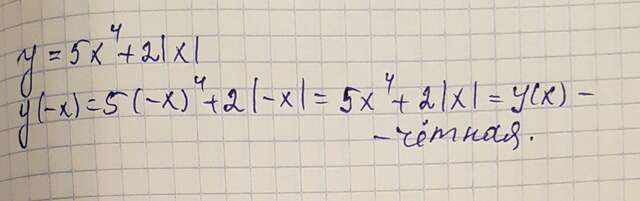 y = 5x⁴ + 2|x|
y(-x) = 5(-x)⁴ + 2|-x| = 5x⁴ + 2|x| = y(x) -
- чётная.